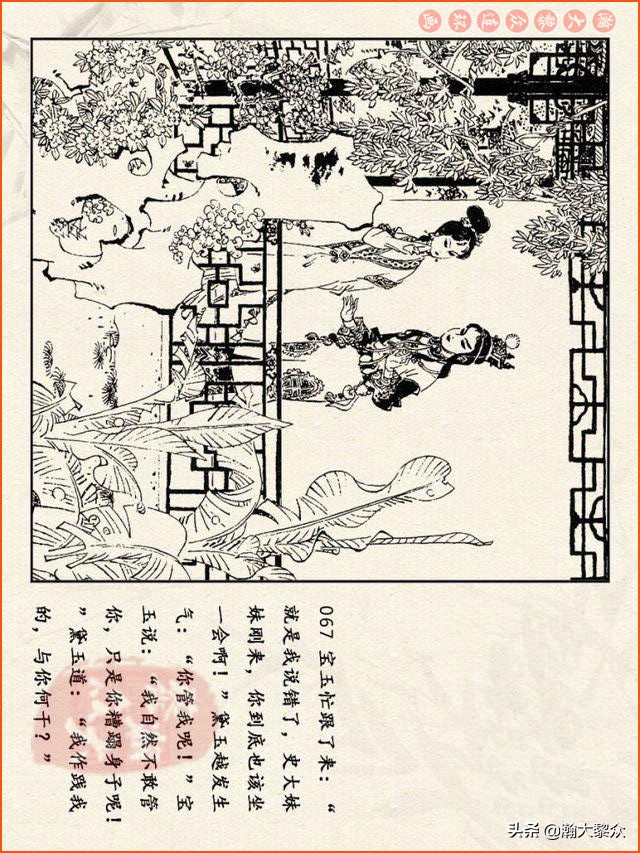 瀚大黎众连环画
067 宝玉忙跟了来：“
就是我说错了，史大妹
妹刚来，你到底也该坐
一会啊！”黛玉越发生
气：“你管我呢！”宝
玉说：“我自然不敢管
你，只是你糟蹋身子呢！
”黛玉道：“我作践我
的，与你何干？”
头条 @瀚大黎众